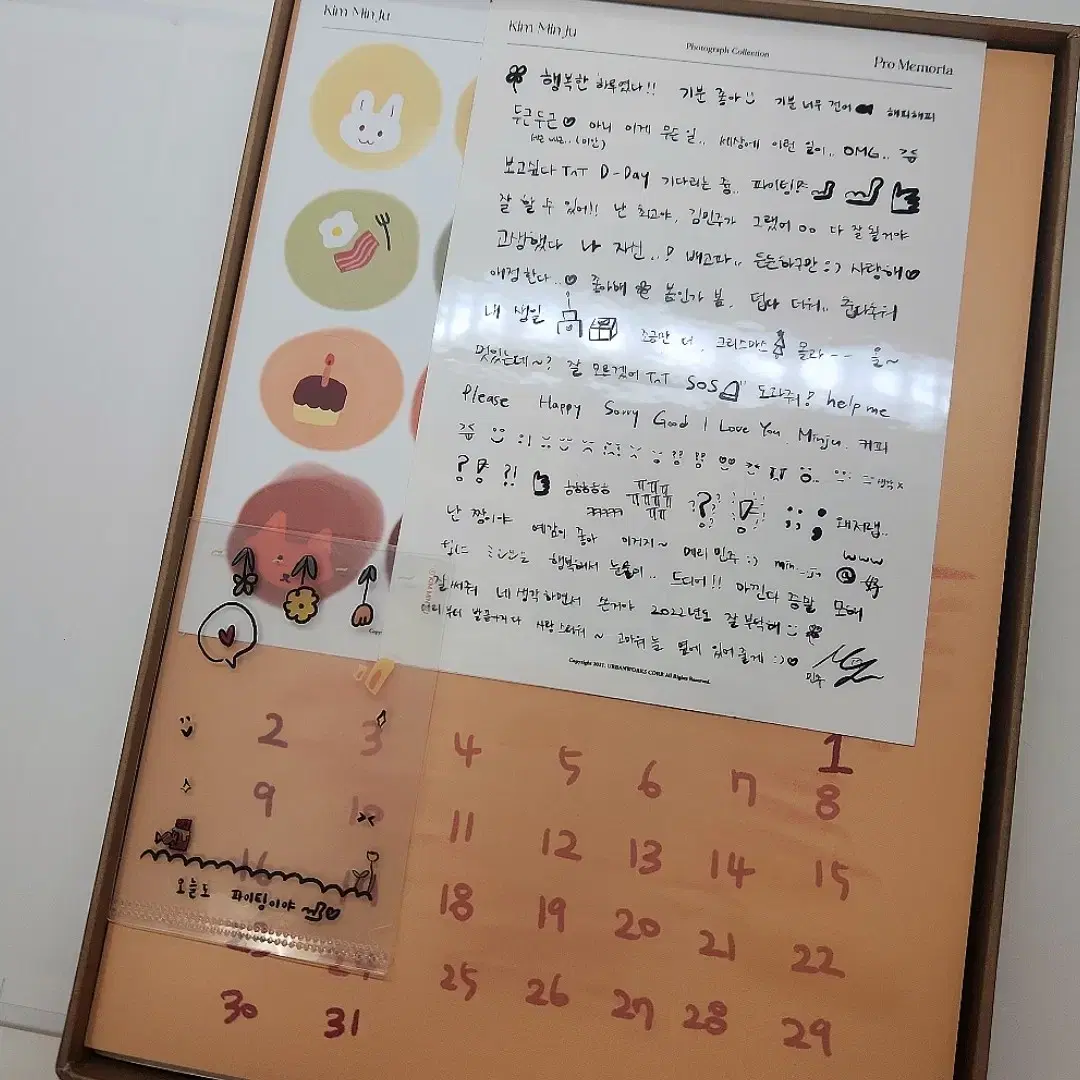 Kim Min Ju
Kim Min Ju
Photograph Collection
Pro Memoria
행복한 하루였다!! 기분 좋아 기분 너무 건어 해피해피
두근두근♡ 아니 이게 무슨 일.. 세상에 이런 일이.. OMG..
(미안)
보고싶다 TㅅT D-Day 기다리는 중.. 파이팅!
잘 할 수 있어!! 난 최고야, 김민주가 그랬어 다 잘 될거야
고생했다 나 자신..! 배고파.. 든든하구만 :) 사랑해♡
애정한다..♡ 좋아해 봄인가 봄. 덥다 더워.. 춥다추워
내 생일 조금만 더. 크리스마스 몰라-- 음~
멋있는데~? 잘 모르겠어 TㅅT SOS 도와줘! help me
Please Happy Sorry Good I Love You. Minju. 커피
:)
생각 x
? ?! ㅎㅎㅎㅎㅎ ㅠㅠㅠ
ㅋㅋㅋㅋ ㅠㅠ ? ! :; 왜저랩..
난 짱이야 예감이 좋아 이거지~ 메리 민주 :) min._.ju www
행복해서 눈물이.. 드디어!! 아낀다 증말 모해 @ 好
잘 써줘 네 생각하면서 쓴거야 2022년도 잘 부탁해
사랑스러워~ 고마워 늘 옆에 있어줄게 :)♡
민주
Copyright 2021. URBANWORKS CORP. All Rights Reserved.
1
2 3 4 5 6 7 8
9 10 11 12 13 14 15
16 18 19 20 21 22
25 26 27 28 29
30 31
오늘도 파이팅이야 ♡